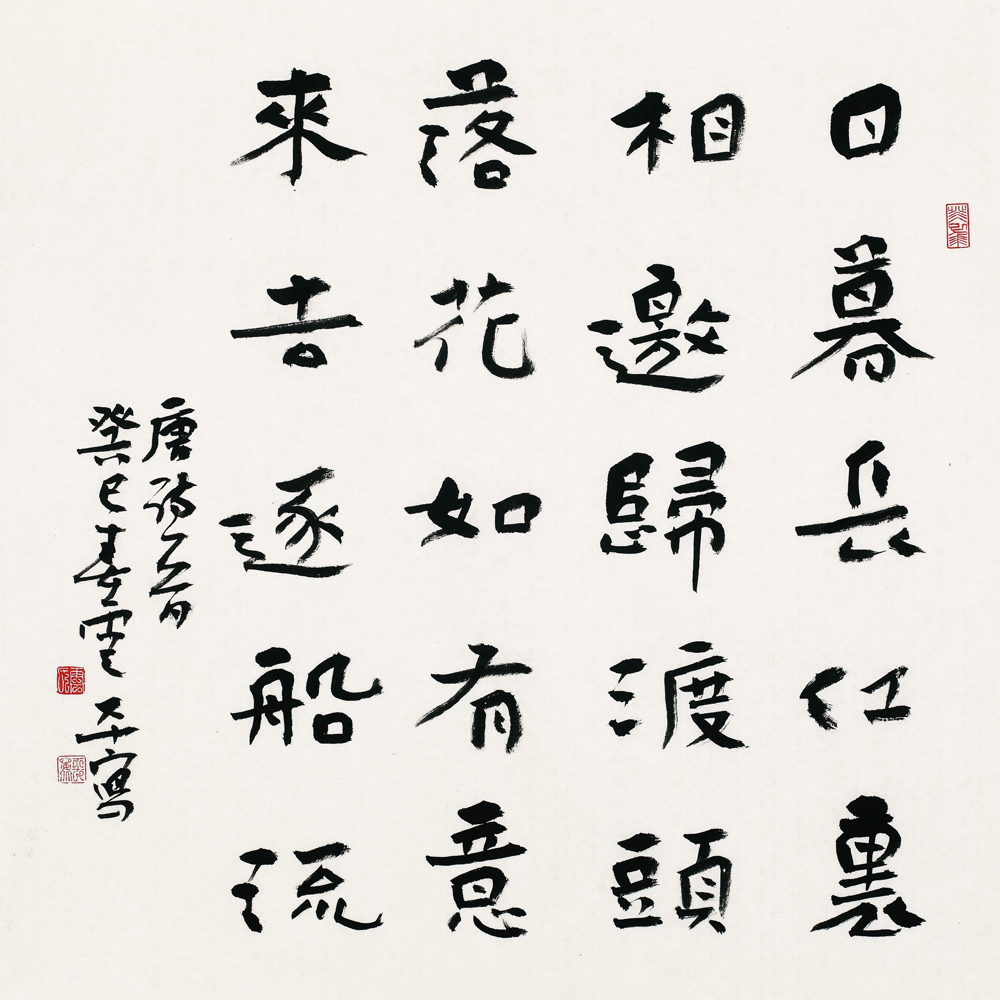 日暮長江裏
相邀歸渡頭
落花如有意
來去逐船流
唐詩一首
癸巳春雲平寫